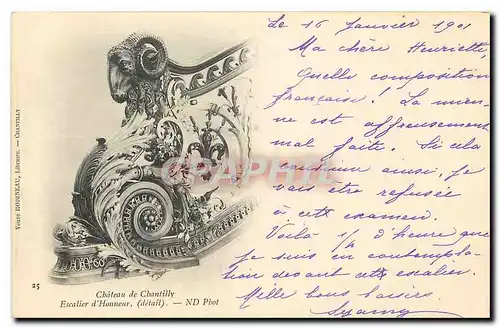 Le 16 Janvier 1901
Ma chère Henriette,
Quelle composition
française! La mien-
ne est affreusement
mal faite. Si cela
continue ainsi, je
vais être refusée
à cet examen.
Voilà 1/4 d'heure que
je suis en contempla-
tion devant cet escalier.
Mille bons baisers.
25
Château de Chantilly
Escalier d'Honneur, (détail). — ND Phot
Veuve BODINEAU, Libraire. — CHANTILLY
CPRphil.com